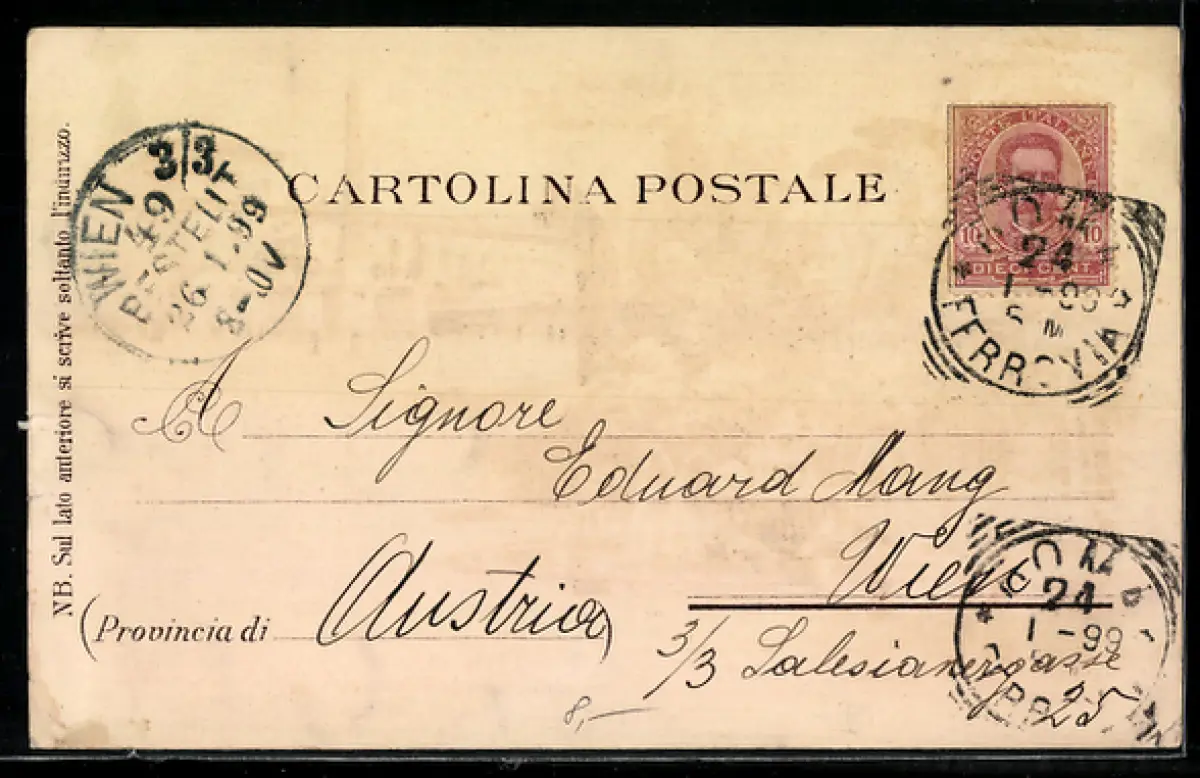 CARTOLINA POSTALE
NB. Sul lato anteriore si scrive soltanto l'indirizzo.
WIEN 3/3
49
BESTELLT
26. 1. 99
8-9 V
POSTE ITALIANE
10 10
DIECI CENT
ROMA
24
1-99
5 M
FERROVIA
A Signore
Eduard Mang
Wien
(Provincia di Austria)
3/3 Salesianergasse
25
8,—
ROMA
24
1-99